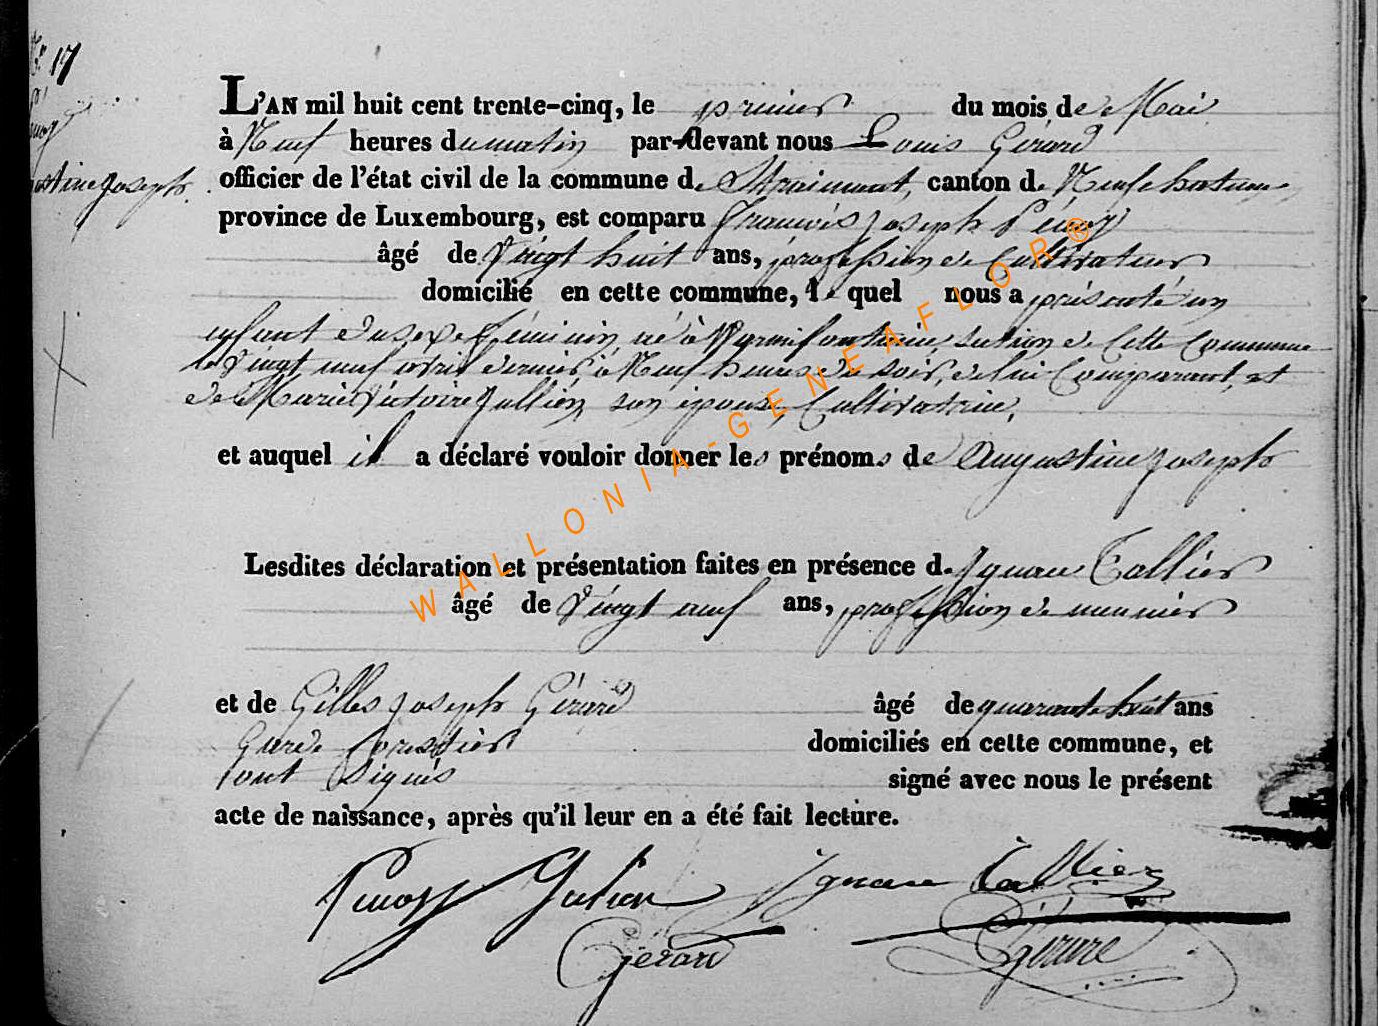 17
L'AN mil huit cent trente-cinq, le premier du mois de Mai
à Neuf heures du matin par-devant nous Louis Gérard
officier de l'état civil de la commune de Straimont, canton de Neufchateau
province de Luxembourg, est comparu François Joseph
âgé de Vingt huit ans, profession de Cultivateur
domicilié en cette commune, le quel nous a présenté un
enfant du sexe féminin né à section de Cette Commune
le Vingt neuf avril dernier à Neuf heures du soir, de lui Comparant, et
de Marie Victoire Jullien son épouse, Cultivatrice,
et auquel il a déclaré vouloir donner les prénoms de Augustine Joseph
Joseph.
Lesdites déclaration et présentation faites en présence de Ignace Tallier
âgé de Vingt neuf ans, profession de meunier
et de Gilles Joseph Gérard âgé de quarante huit ans
Garde forestier domiciliés en cette commune, et
ont signés signé avec nous le présent
acte de naissance, après qu'il leur en a été fait lecture.
Ignace Tallier
Gérard
WALLONIA-GENEAFLOR®